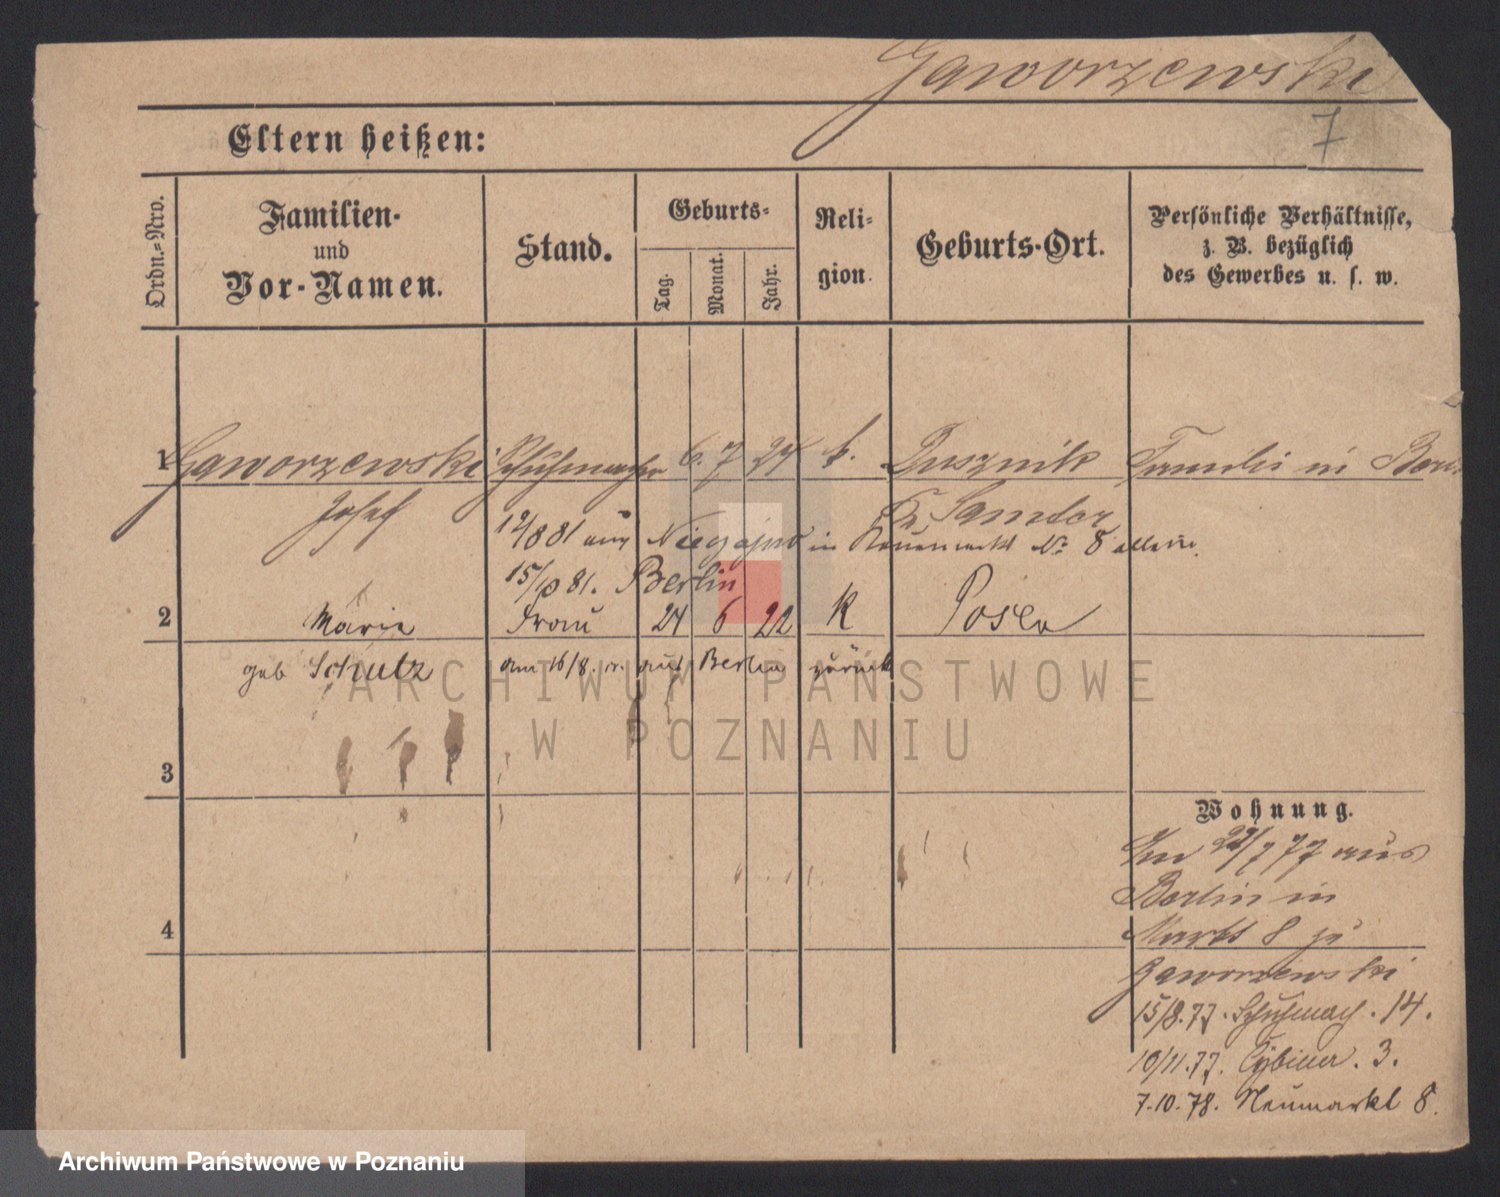 Gaworzewski
7
Eltern heißen:
Ordn.=Nro.
Familien-
und
Vor-Namen.
Stand.
Geburts-
Tag.
Monat.
Jahr.
Reli-
gion.
Geburts-Ort.
Persönliche Verhältnisse,
z. B. bezüglich
des Gewerbes u. s. w.
1 Gaworzewski Schuhmacher 6. 7 24 k. Dusznik Familie in Berlin
Josef Kr Samter
12/8 81 aus in Neumarkt No 8 allein.
15/10 81. Berlin
2 Marie Frau 24 6 22 K Posen
geb Schulz am 16/8. cr. aus Berlin zurück
ARCHIWUM PAŃSTWOWE
W POZNANIU
3
Wohnung.
Am 22/7 77 aus
Berlin in
4 Markt 8 zu
Gaworzewski
15/8.77. Schuhmach. 14.
10/11.77. 3.
7.10.78. Neumarkt 8.
Archiwum Państwowe w Poznaniu